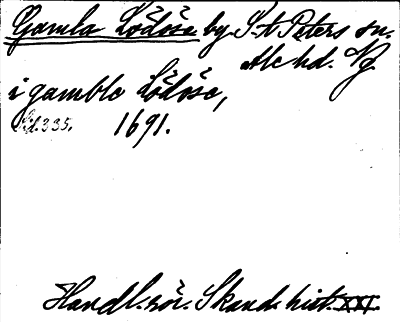 Gamla Lödöse by S:t Peters sn.
Ale hd. Vg.
i gamble Lödöse,
sid. 335. 1691.
Handl. rör. Skand. hist. XXI.